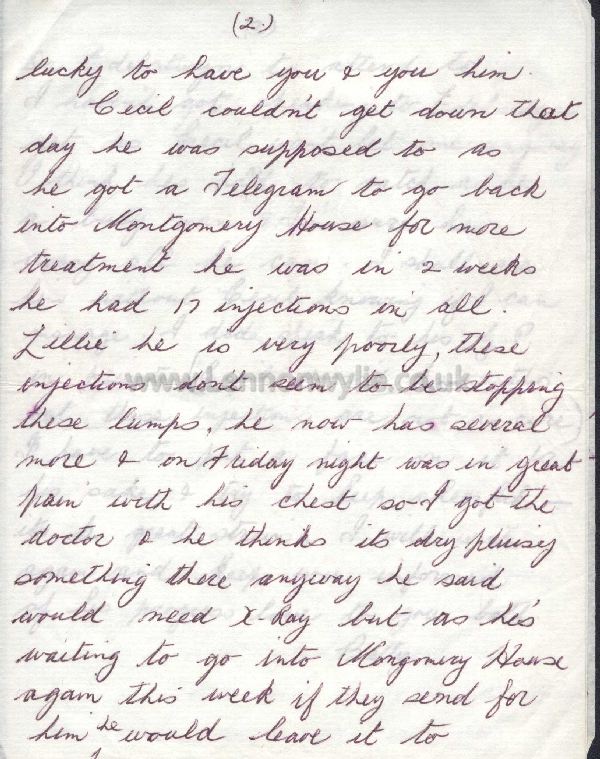 (2.)
lucky to have you & you him.
Cecil couldn't get down that
day he was supposed to as
he got a Telegram to go back
into Montgomery House for more
treatment he was in 2 weeks
he had 17 injections in all.
Lillie he is very poorly, these
injections dont seem to be stopping
www.Lennonwylie.co.uk
these lumps, he now has several
more & on Friday night was in great
pain with his chest so I got the
doctor & he thinks its dry pluisy
something there anyway he said
would need X-Ray but as he's
waiting to go into Mongomery House
again this week if they send for
him he would leave it to